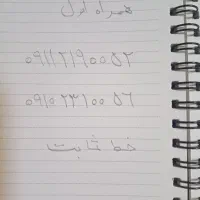 همراه اول
۰۹۱۱۲۱۹۰۰۵۲
۰۹۱۰۲۳۱۰۰۵۶
خط ثابت